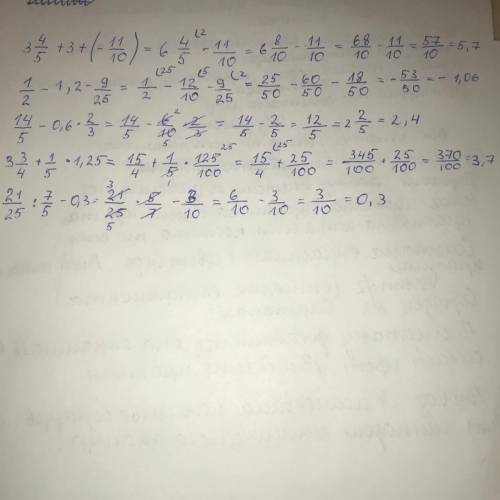 3 4/5 + 3 + (- 11/10) = 6 4/5 (2 - 11/10 = 6 8/10 - 11/10 = 68/10 - 11/10 = 57/10 = 5,7
1/2 - 1,2 - 9/25 = 1/2 (25 - 12/10 (5 - 9/25 (2 = 25/50 - 60/50 - 18/50 = - 53/50 = - 1,06
14/5 - 0,6 * 2/3 = 14/5 - 6 2/10 5 * 2/3 = 14/5 - 2/5 = 12/5 = 2 2/5 = 2,4
3 3/4 + 1/5 * 1,25 = 15/4 + 1/5 * 125 25/100 = 15/4 (25 + 25/100 = 345/100 + 25/100 = 370/100 = 3,7
21/25 : 7/5 - 0,3 = 21 3/25 5 * 5 1/7 - 3/10 = 6/10 - 3/10 = 3/10 = 0,3